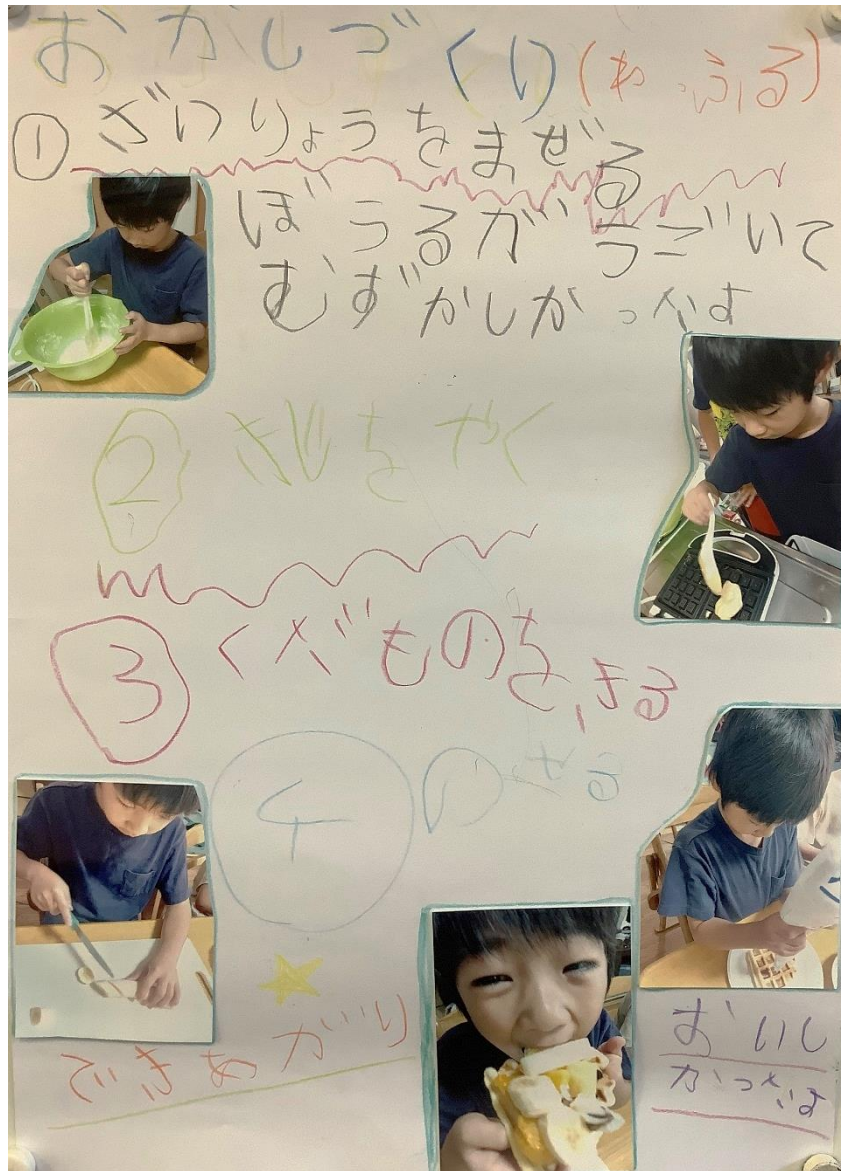 おかしづくり(わっふる)
①ざいりょうをまぜる
ぼうるがうごいて
むずかしかったよ
②きじをやく
③くだものを、きる
④のせる
できあがり
おいし
かったよ